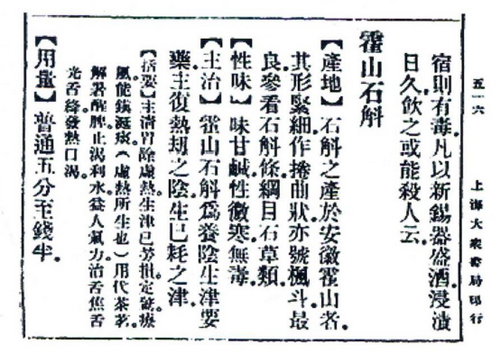 五一六
上海大衆書局印行
宿則有毒。凡以新錫器盛酒。浸漬
日久。飲之或能殺人云。
霍山石斛
【產地】石斛之產於安徽霍山者。
其形緊細。作捲曲狀。亦號楓斗。最
良。參看石斛條。綱目石草類。
【性味】味甘鹹性微寒無毒。
【主治】霍山石斛爲養陰生津要
藥。主復熱刼之陰。生已耗之津。
【括要】主清胃。除虛熱。生津。已勞損。定驚。療
風。能鎮涎痰。(虛熱所生也)用代茶茗。
解暑。醒脾。止渴。利水。益人氣力。治舌焦。舌
光。舌絳。發熱。口渴。
【用量】普通五分至錢半。